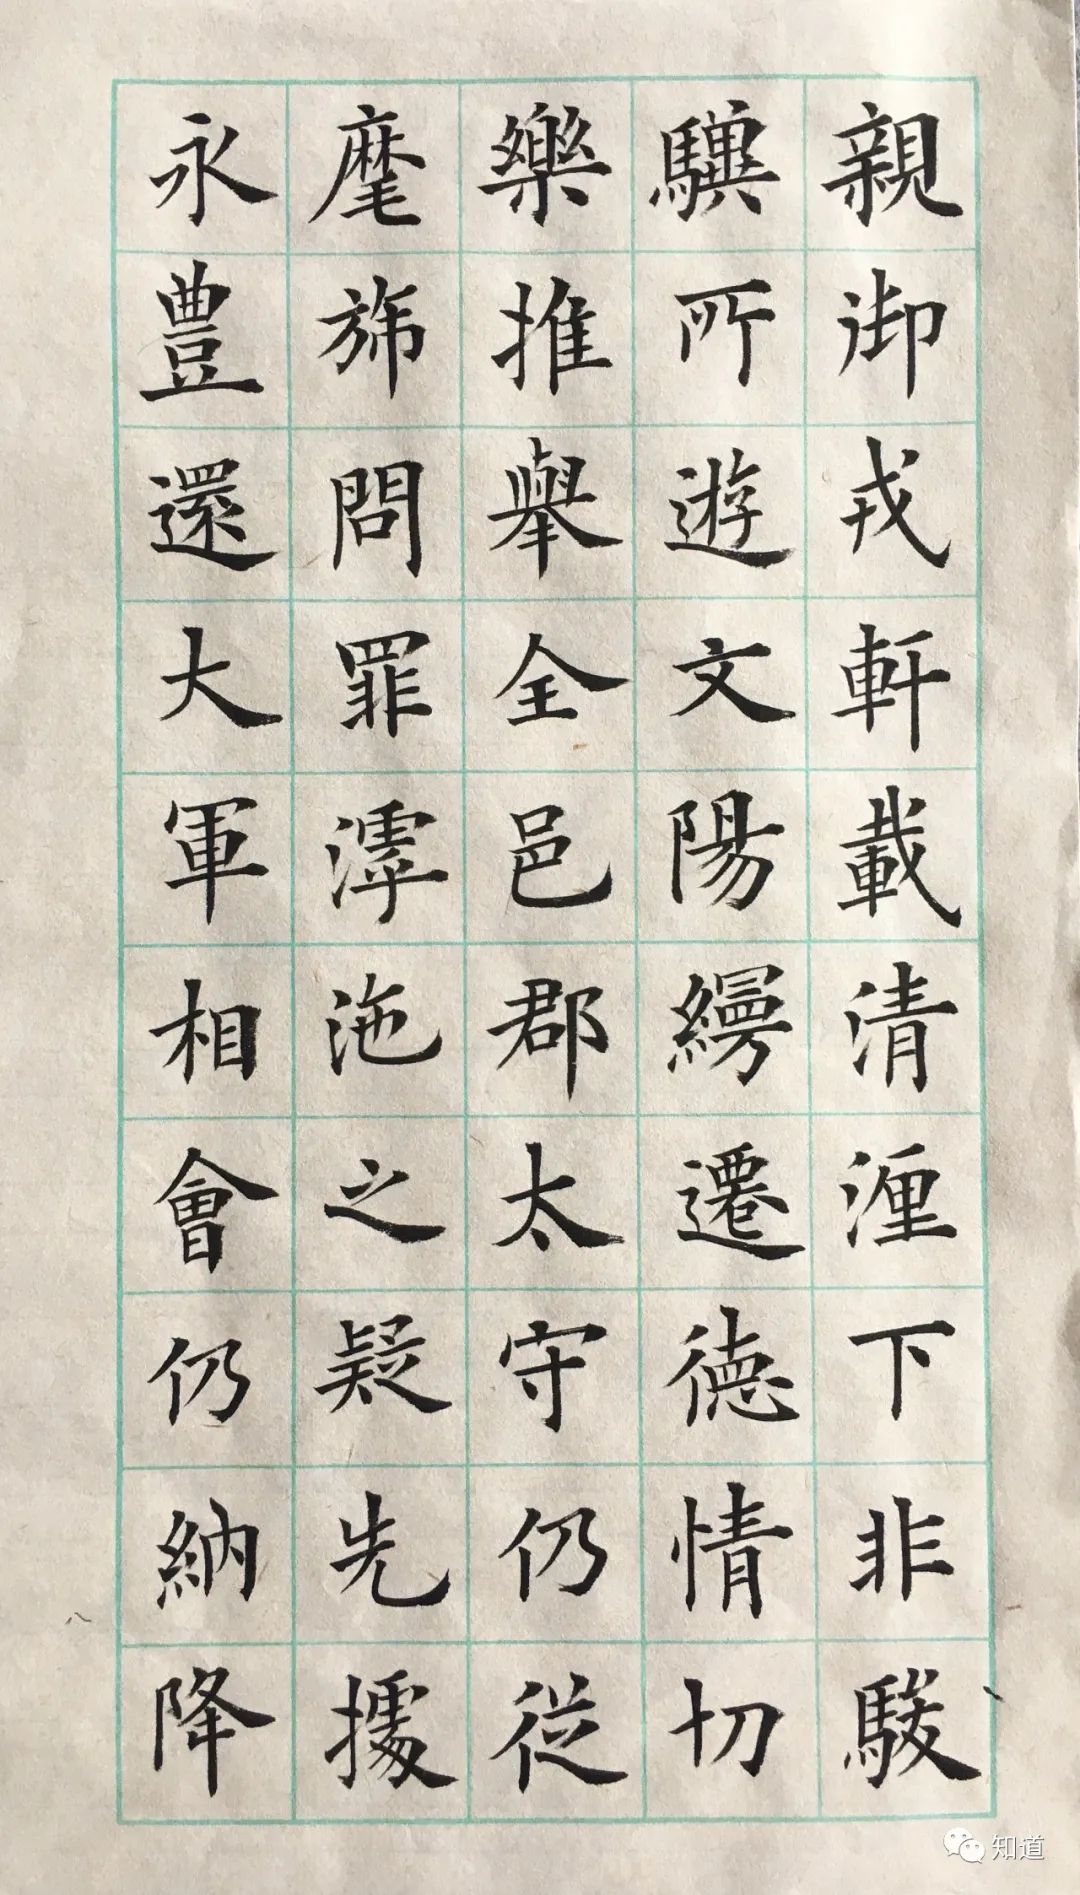 親御戎軒載清湮下非駿
驥所遊文陽縵遷徳情切
樂推舉全邑郡太守仍從
麾旆問罪滹沲之疑先據
永豊還大軍相會仍納降
知道